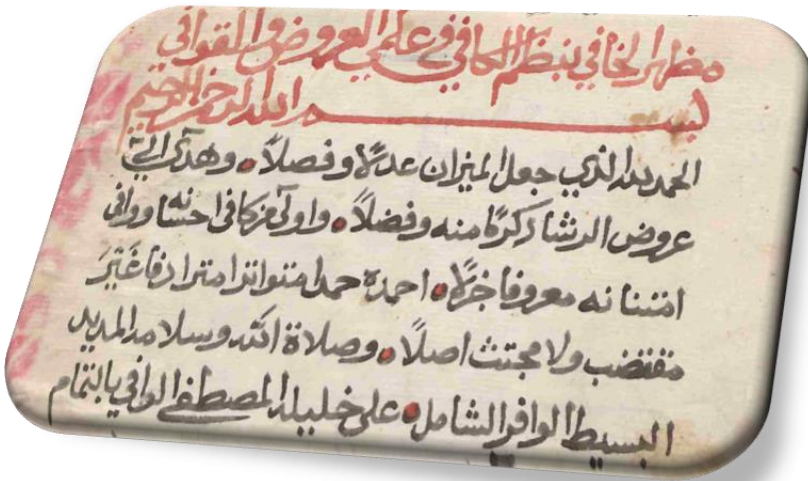 مظهر الخافي بنظم الكافي في علمي العروض والقوافي
بسم الله الرحمن الرحيم
الحمد لله الذي جعل الميزان عدلا وفصلاً وهدى الى
عروض الرشاد كرمًا منه وفضلاً واولى من كافي احسانه ووافي
امتنانه معروفا جزلا احمده حمدا متواترا مترادفا غَيْرَ
مقتضب ولا مجتث اصلًا وصلاة الله وسلامه المديد
البسيط الوافر الشامل على خليله المصطفى الوافي بالتمام